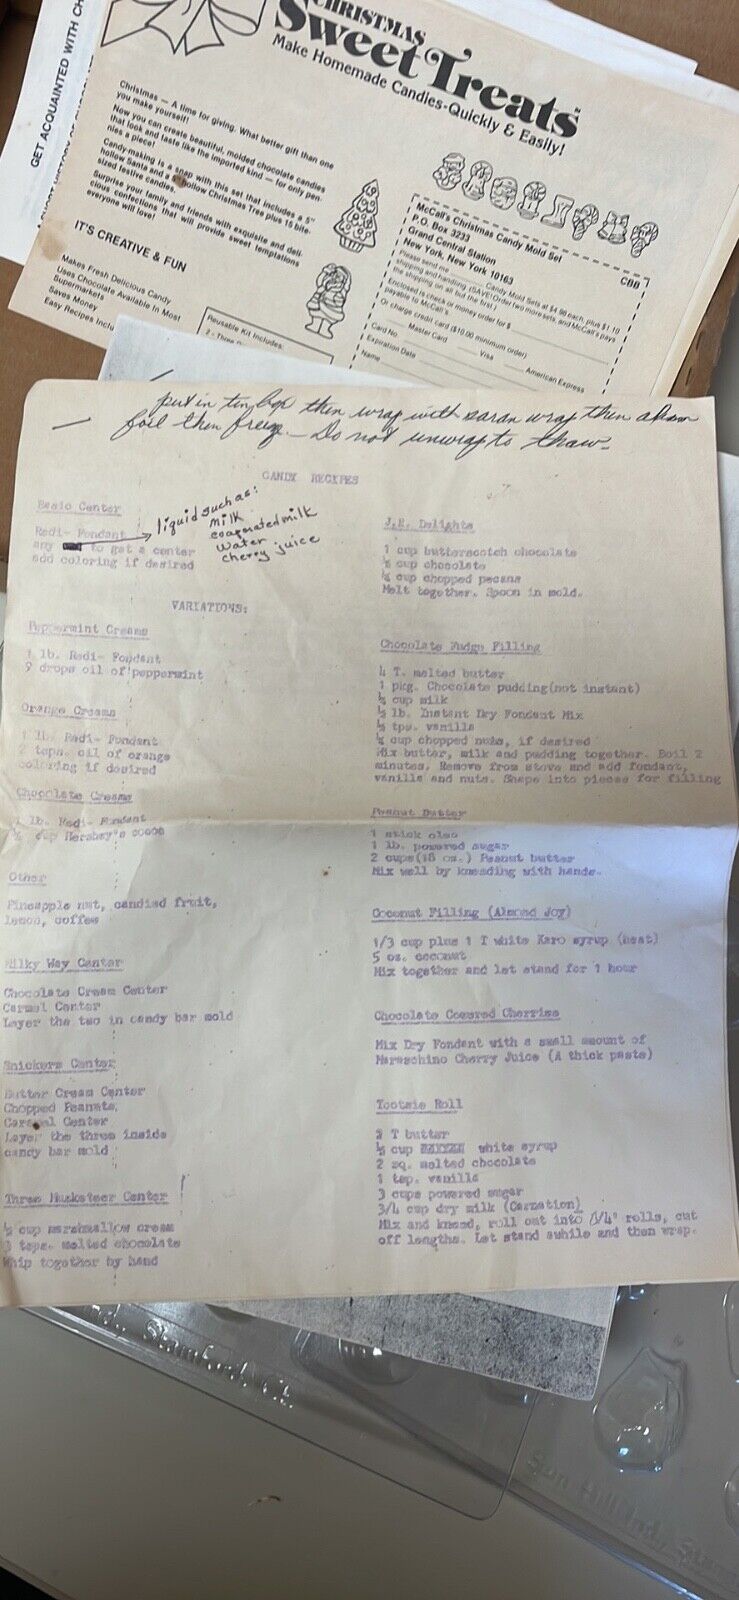 GET ACQUAINTED WITH CH
CHRISTMAS
Sweet Treats
Make Homemade Candies-Quickly & Easily!
Christmas — A time for giving. What better gift than one
you make yourself!
Now you can create beautiful, molded chocolate candies
that look and taste like the imported kind — for only pen-
nies a piece!
Candy-making is a snap with this set that includes a 5"
hollow Santa and a hollow Christmas Tree plus 15 bite-
sized festive candies.
Surprise your family and friends with exquisite and deli-
cious confections that will provide sweet temptations
everyone will love!
IT'S CREATIVE & FUN
Makes Fresh Delicious Candy
Uses Chocolate Available In Most
Supermarkets
Saves Money
Easy Recipes Inclu
Reusable Kit Includes:
McCall's Christmas Candy Mold Set
P.O. Box 3233
CBB
Grand Central Station
New York, New York 10163
Please send me Candy Mold Sets at $4.98 each, plus $1.10
shipping and handling. (SAVE! Order two or more sets, and McCall's pays
the shipping on all but the first.)
Enclosed is check or money order for $
payable to McCall's.
Or charge credit card ($10.00 minimum order)
Master Card Visa American Express
Card No.
Expiration Date
Name
put in tin box then wrap with saran wrap then alum
foil then freeze — Do not unwrap to thaw—
CANDY RECIPES
Basic Center
Redi- Fondant
any to get a center
add coloring if desired
liquid such as:
milk
evaporated milk
water
cherry juice
VARIATIONS:
Peppermint Creams
1 lb. Redi- Fondant
9 drops oil of peppermint
Orange Creams
1 lb. Redi- Fondant
2 tsps. oil of orange
coloring if desired
Chocolate Creams
1 lb. Redi- Fondant
cup Hershey's cocoa
Other
Pineapple nut, candied fruit,
lemon, coffee
Milky Way Center
Chocolate Cream Center
Carmel Center
Layer the two in candy bar mold
Snickers Center
Butter Cream Center
Chopped Peanuts
Carmel Center
Layer the three inside
candy bar mold
Three Musketeer Center
½ cup marshmallow cream
3 tsps. melted chocolate
Whip together by hand
J.E. Delights
1 cup butterscotch chocolate
cup chocolate
cup chopped pecans
Melt together. Spoon in mold.
Chocolate Fudge Filling
4 T. melted butter
1 pkg. Chocolate pudding(not instant)
cup milk
lb. Instant Dry Fondant Mix
½ tps. vanilla
cup chopped nuts, if desired
Mix butter, milk and pudding together. Boil 2
minutes. Remove from stove and add fondant,
vanilla and nuts. Shape into pieces for filling
Peanut Butter
1 stick oleo
1 lb. powered sugar
2 cups(18 oz.) Peanut butter
Mix well by kneading with hands.
Coconut Filling (Almond Joy)
1/3 cup plus 1 T white Karo syrup (heat)
5 oz. coconut
Mix together and let stand for 1 hour
Chocolate Covered Cherries
Mix Dry Fondant with a small amount of
Maraschino Cherry Juice (A thick paste)
Tootsie Roll
2 T butter
½ cup white syrup
2 sq. melted chocolate
1 tsp. vanilla
3 cups powered sugar
3/4 cup dry milk (Carnation)
Mix and knead, roll out into 3/4" rolls, cut
off lengths. Let stand awhile and then wrap.
dy Stamford, Ct.